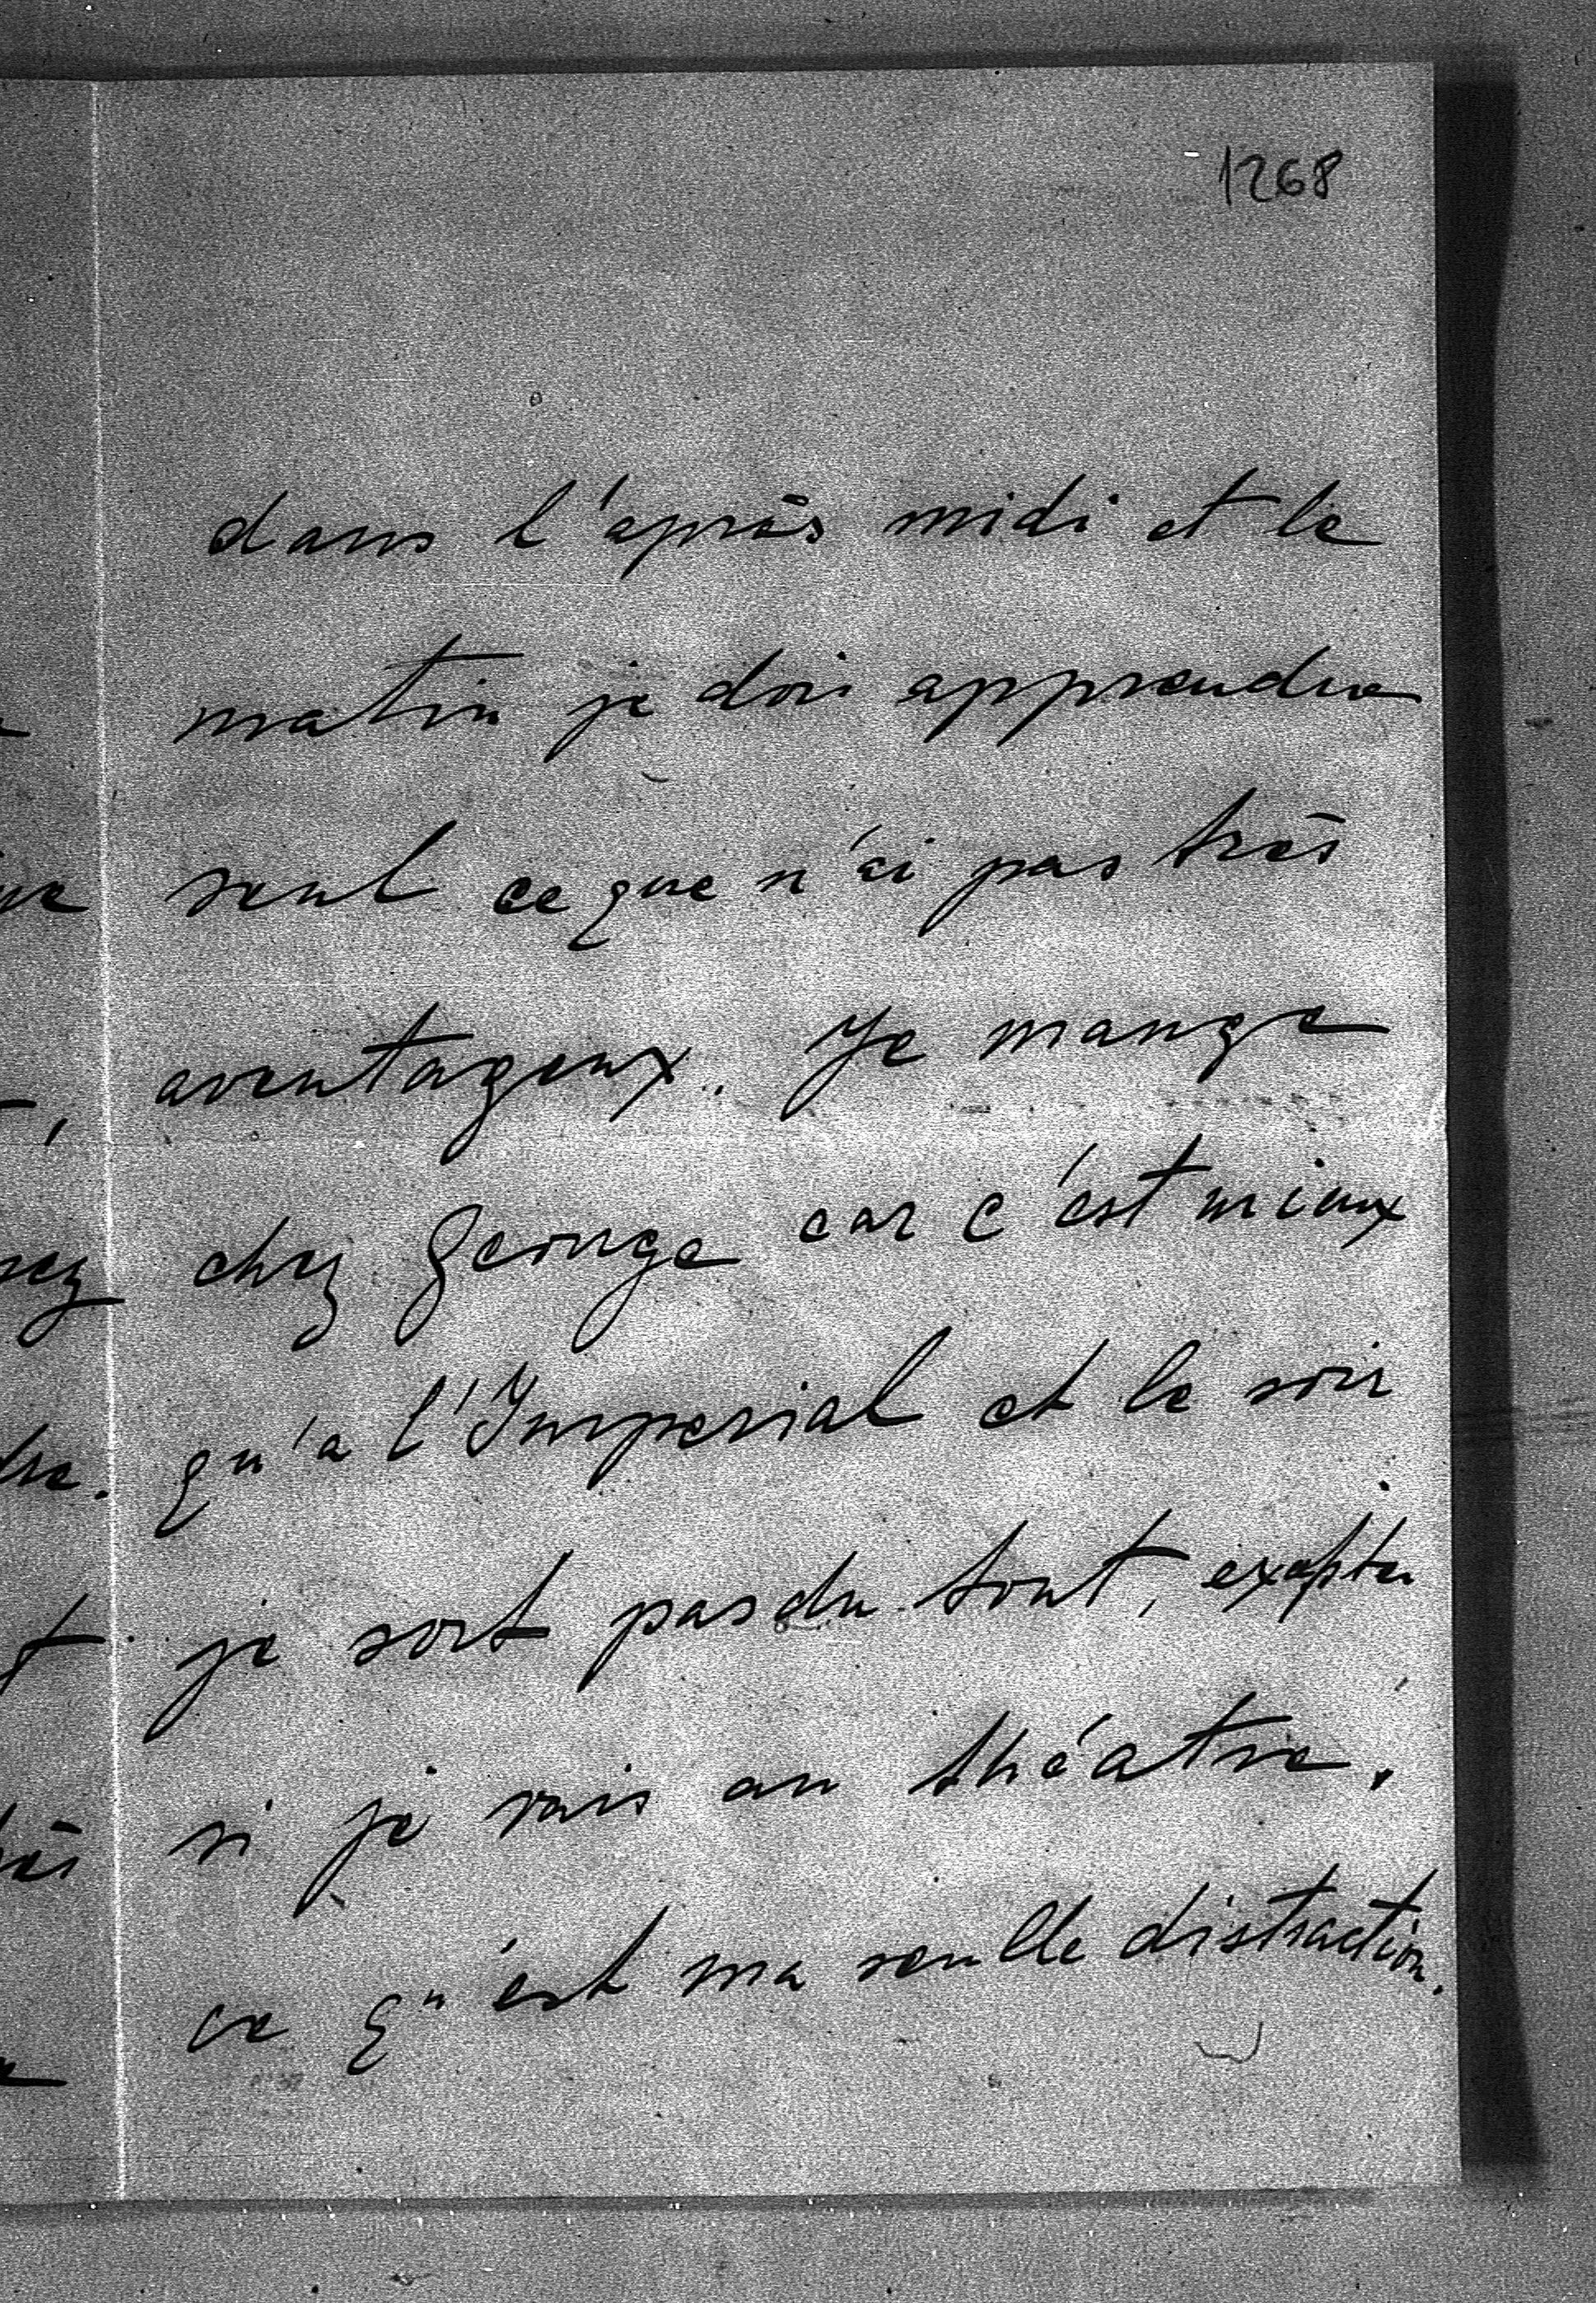 1268
dans l'après midi et le
matin je dois apprendre
seul ce que n'ai pas très
aventageux. Je mange
chez George car c'est mieux
qu'a l'Imperial et le soir
je sort pas du tout, exepter
si je vais au théatre,
ce qu'est ma seulle distraction.